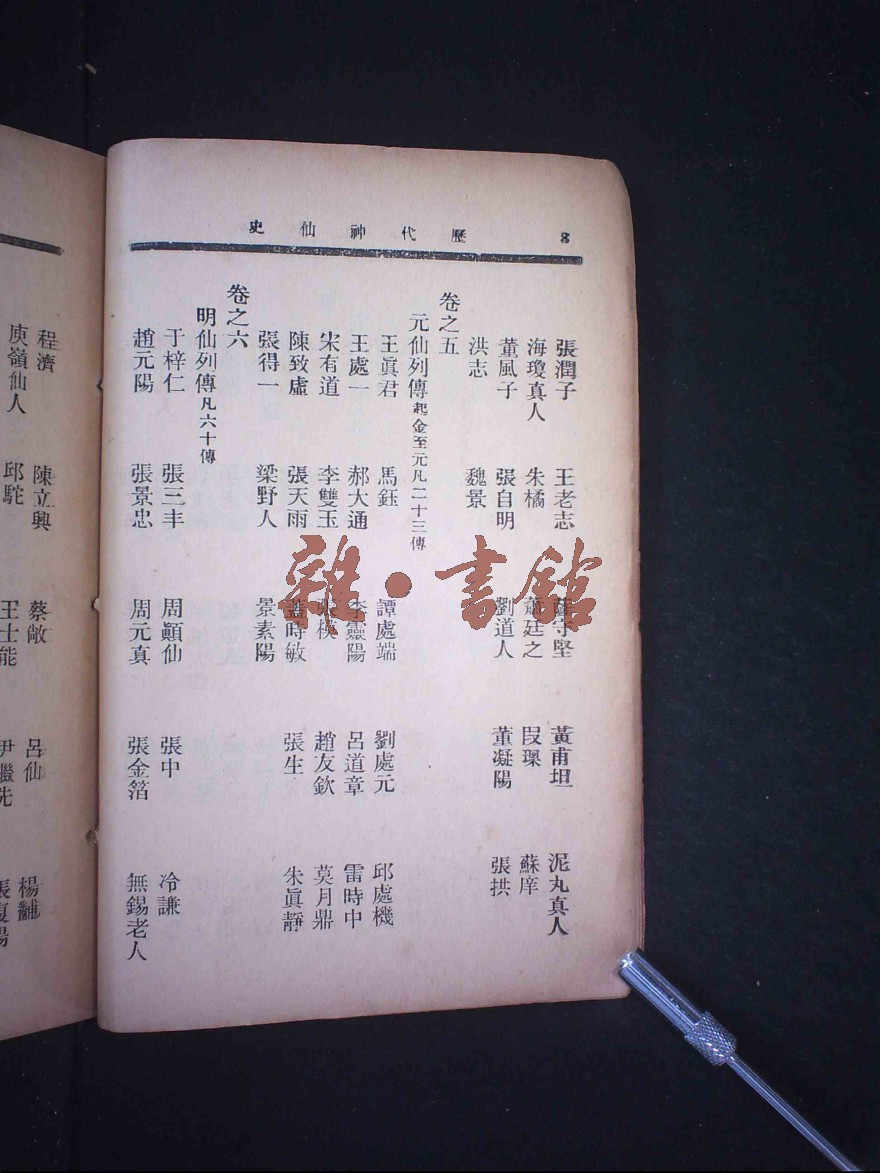 歷代神仙史 8
張潤子 王老志 薛守堅 黃甫坦 泥丸真人
海瓊真人 朱橘 蕭廷之 段璖 蘇庠
董風子 張自明 劉道人 董凝陽 張拱
洪志 魏景
卷之五
元仙列傳起金至元凡二十三傳
王眞君 馬鈺 譚處端 劉處元 邱處機
王處一 郝大通 李靈陽 呂道章 雷時中
宋有道 李雙玉 張模 趙友欽 莫月鼎
陳致虛 張天雨 蓋時敏 張生 朱眞靜
張得一 梁野人 景素陽
卷之六
明仙列傳凡六十傳
于梓仁 張三丰 周顚仙 張中 冷謙
趙元陽 張景忠 周元真 張金箔 無錫老人
程濟 陳立興 蔡敞 呂仙 楊黼
庾嶺仙人 邱駝 王士能 尹繼先
雜·書館